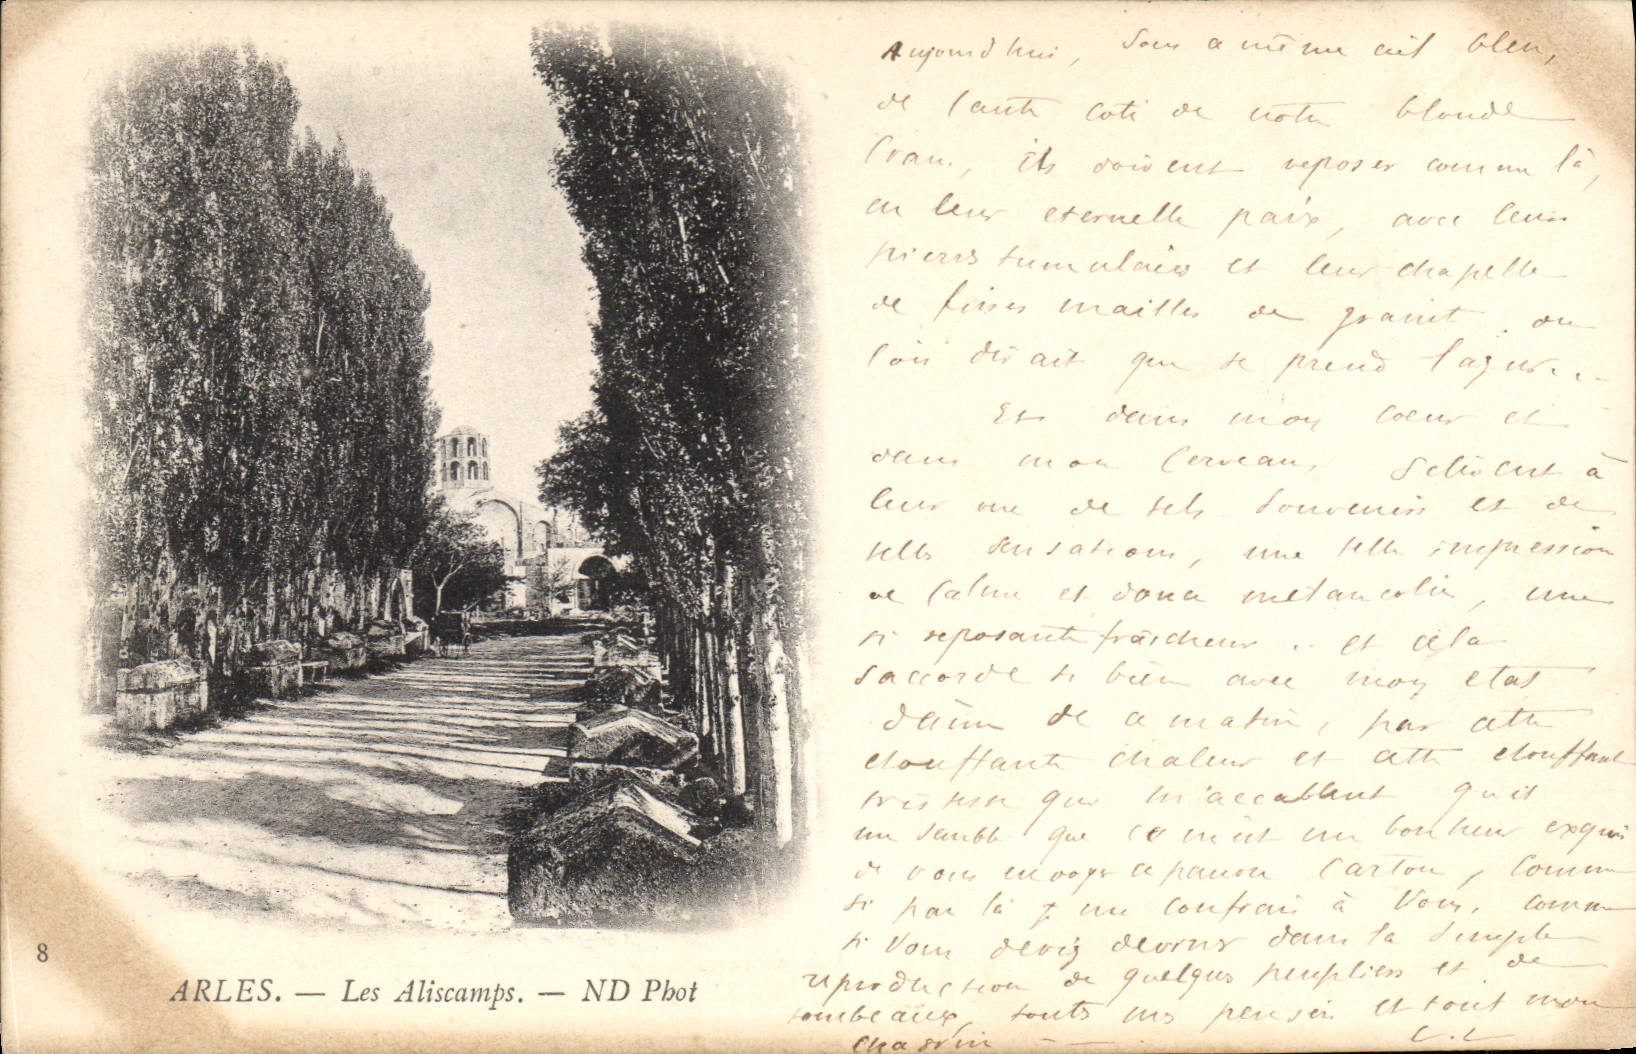 Aujourd'hui, sous ce même ciel bleu,
de l'autre côté de notre blonde
Crau, ils doivent reposer comme là,
en leur eternelle paix, avec leurs
pierres tumulaires et leur chapelle
de fines mailles de granit, où
l'on dirait que se prend l'azur...
Et dans mon coeur et
dans mon cerveau, s'elèvent à
leur vue de tels souvenirs et de
telles sensations, une telle impression
de calme et douce mélancolie, une
si reposante fraîcheur .. et cela
s'accorde si bien avec mon etat
d'âme de ce matin, par cette
etouffante chaleur et cette etouffante
tristesse qui m'accablent qu'il
me semble que ce m'est un bonheur exquis
de vous envoyer ce pauvre carton, comme
si par là je me confiais à Vous, comme
si Vous deviez deviner dans la simple
reproduction de quelques peupliers et de
tombeaux, toutes mes pensées et tout mon
chagrin
8
ARLES. — Les Aliscamps. — ND Phot